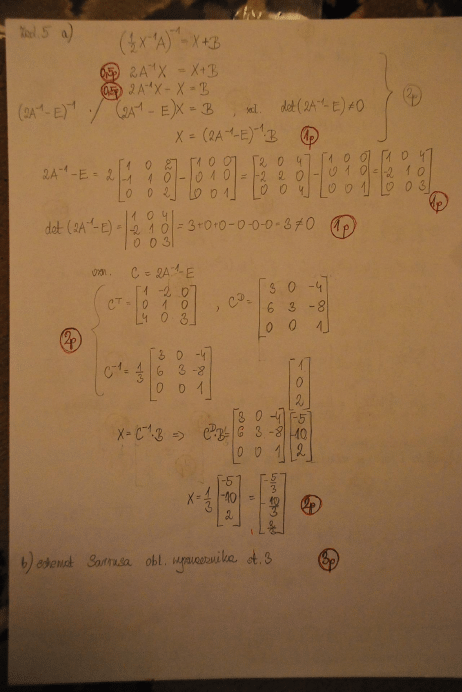 Zad. 5 a)
(1/2 X⁻¹A)⁻¹ = X+B
0,5p 2A⁻¹X = X+B
0,5p 2A⁻¹X - X = B
(2A⁻¹-E)⁻¹ · / (2A⁻¹-E)X = B , zał. det(2A⁻¹-E) ≠ 0 2p
X = (2A⁻¹-E)⁻¹·B 1p
2A⁻¹-E = 2 [1 0 2; -1 1 0; 0 0 2] - [1 0 0; 0 1 0; 0 0 1] = [2 0 4; -2 2 0; 0 0 4] - [1 0 0; 0 1 0; 0 0 1] = [1 0 4; -2 1 0; 0 0 3] 1p
det(2A⁻¹-E) = |1 0 4; -2 1 0; 0 0 3| = 3+0+0-0-0-0 = 3 ≠ 0 1p
ozn. C = 2A⁻¹-E
2p Cᵀ = [1 -2 0; 0 1 0; 4 0 3] , Cᴰ = [3 0 -4; 6 3 -8; 0 0 1]
C⁻¹ = 1/3 [3 0 -4; 6 3 -8; 0 0 1] [1; 0; 2]
X = C⁻¹·B => Cᴰ·B = [3 0 -4; 6 3 -8; 0 0 1] [-5; -10; 2]
X = 1/3 [-5; -10; 2] = [-5/3; -10/3; 2/3] 2p
b) schemat Sarrusa obl. wyznacznika st. 3 3p